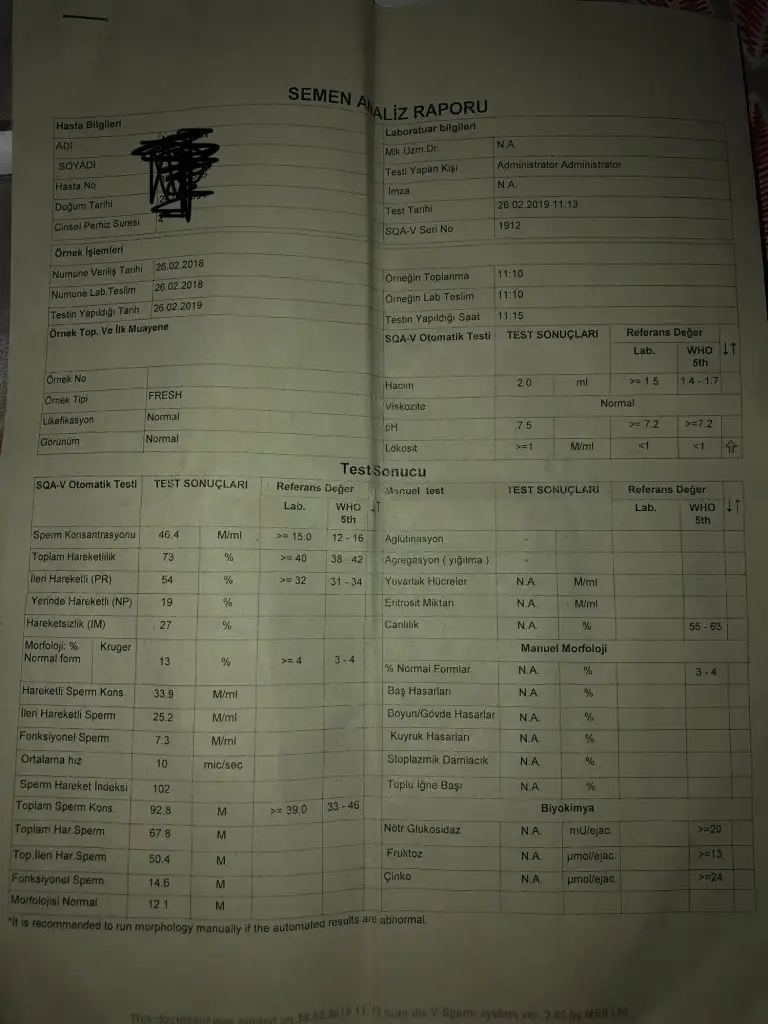 SEMEN ANALİZ RAPORU
Hasta Bilgileri
ADI
SOYADI
Hasta No
Doğum Tarihi
Cinsel Perhiz Suresi 4
Laboratuar bilgileri
Mik.Uzm.Dr. N.A.
Testi Yapan Kişi Administrator Administrator
İmza N.A.
Test Tarihi 26.02.2019 11.13
SQA-V Seri No 1912
Örnek İşlemleri
Numune Veriliş Tarihi 26.02.2018
Numune Lab.Teslim 26.02.2018
Testin Yapıldığı Tarih 26.02.2019
Örneğin Toplanma 11:10
Örneğin Lab Teslim 11:10
Testin Yapıldığı Saat 11:15
Örnek Top. Ve İlk Muayene
Örnek No
Örnek Tipi FRESH
Likefikasyon Normal
Görünüm Normal
SQA-V Otomatik Testi TEST SONUÇLARI Referans Değer
Lab. WHO 5th ↓↑
Hacim 2.0 ml >= 1.5 1.4 - 1.7
Viskozite Normal
pH 7.5 >= 7.2 >=7.2
Lökosit >=1 M/ml <1 <1 ⇧
Test Sonucu
SQA-V Otomatik Testi TEST SONUÇLARI Referans Değer
Lab. WHO 5th ↓↑
Sperm Konsantrasyonu 46.4 M/ml >= 15.0 12 - 16
Toplam Hareketlilik 73 % >= 40 38 - 42
İleri Hareketli (PR) 54 % >= 32 31 - 34
Yerinde Hareketli (NP) 19 %
Hareketsizlik (IM) 27 %
Morfoloji: % Normal form Kruger 13 % >= 4 3 - 4
Hareketli Sperm Kons. 33.9 M/ml
İleri Hareketli Sperm 25.2 M/ml
Fonksiyonel Sperm 7.3 M/ml
Ortalama hız 10 mic/sec
Sperm Hareket İndeksi 102
Toplam Sperm Kons. 92.8 M >= 39.0 33 - 46
Toplam Har.Sperm 67.8 M
Top.İleri Har.Sperm 50.4 M
Fonksiyonel Sperm 14.6 M
Morfolojisi Normal 12.1 M
Manuel test TEST SONUÇLARI Referans Değer
Lab. WHO 5th ↓↑
Aglütinasyon -
Agregasyon ( yığılma ) -
Yuvarlak Hücreler N.A. M/ml
Eritrosit Miktarı N.A. M/ml
Canlılık N.A. % 55 - 63
Manuel Morfoloji
% Normal Formlar N.A. % 3 - 4
Baş Hasarları N.A. %
Boyun/Gövde Hasarlar N.A. %
Kuyruk Hasarları N.A. %
Stoplazmik Damlacık N.A. %
Toplu İğne Başı N.A. %
Biyokimya
Nötr Glukosidaz N.A. mU/ejac. >=20
Fruktoz N.A. µmol/ejac. >=13
Çinko N.A. µmol/ejac. >=24
*It is recommended to run morphology manually if the automated results are abnormal.
This document was printed on 26.02.2019 11.13 from the V-Sperm system ver. 3.60 by MES Ltd.